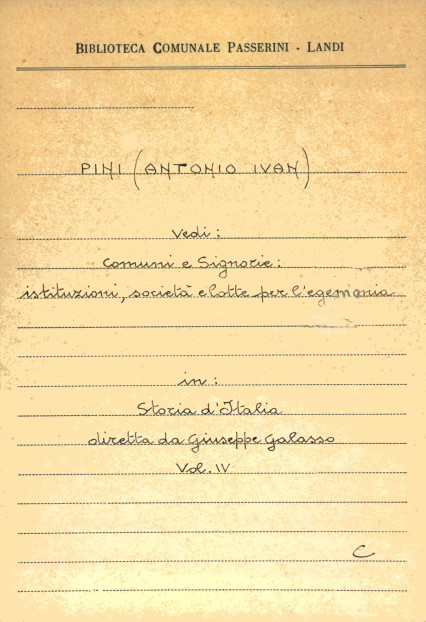 BIBLIOTECA COMUNALE PASSERINI - LANDI
PINI (ANTONIO IVAN)
Vedi:
Comuni e Signorie:
istituzioni, società e lotte per l'egemonia
in:
Storia d'Italia
diretta da Giuseppe Galasso
Vol. IV
C